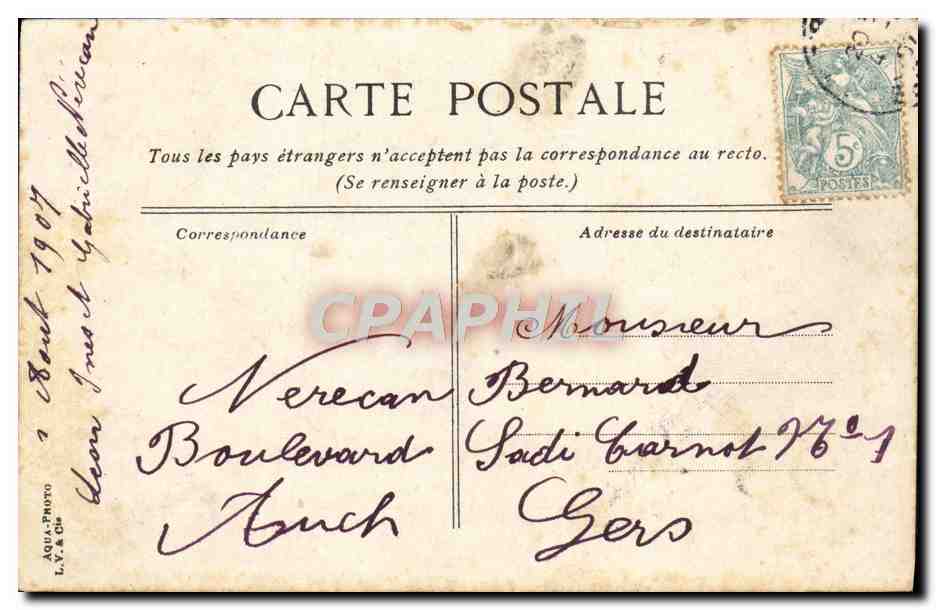 CARTE POSTALE
Tous les pays étrangers n'acceptent pas la correspondance au recto.
(Se renseigner à la poste.)
5c
POSTES
Correspondance
Adresse du destinataire
CPAPHIL
Monsieur
Nerecan Bernard
Boulevard Sadi Carnot No 1
Auch Gers
1 Aout 1907
Leon Ines et Gabrielle Nerecan
AQUA-PHOTO
L.V. & Cie